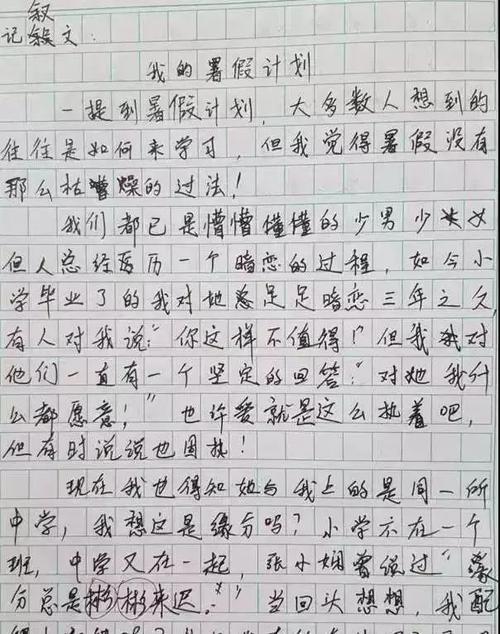 叙
记叙文：
我的暑假计划
一提到暑假计划，大多数人想到的
往往是如何来学习，但我觉得暑假没有
那么枯燥的过法！
我们都已是懵懵懂懂的少男少女
但人总经历一个暗恋的过程，如今小
学毕业了的我对她足足暗恋三年之久
有人对我说："你这样不值得！"但我对
他们一直有一个坚定的回答："对她我什
么都愿意！"也许爱就是这么执着吧，
但有时说说也固执！
现在我也得知她与我上的是同一所
中学，我想这是缘分吗？小学不在一个
班，中学又在一起，张小娴曾说过"缘
分总是彬彬来迟。"当回头想想，我配